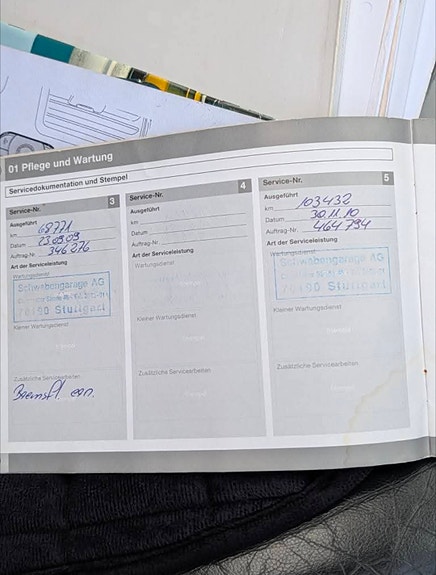 01 Pflege und Wartung
Servicedokumentation und Stempel
Service-Nr. 3
Ausgeführt
km 68771
Datum 23.09.09
Auftrag-Nr. 346276
Art der Serviceleistung
Wartungsdienst
Schwabengarage AG
70190 Stuttgart
Kleiner Wartungsdienst
Zusätzliche Servicearbeiten
Bremsfl. ern.
Service-Nr. 4
Ausgeführt
km
Datum
Auftrag-Nr.
Art der Serviceleistung
Wartungsdienst
Kleiner Wartungsdienst
Zusätzliche Servicearbeiten
Service-Nr. 5
Ausgeführt
km 103432
Datum 30.11.10
Auftrag-Nr. 464794
Art der Serviceleistung
Wartungsdienst
Schwabengarage AG
70190 Stuttgart
Kleiner Wartungsdienst
Zusätzliche Servicearbeiten